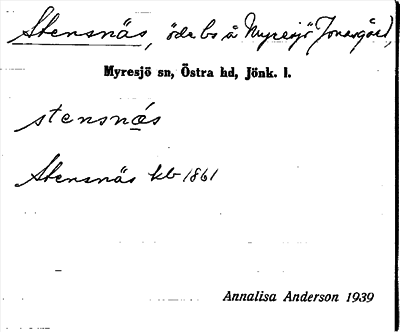 Stensnäs, öde bs å Myresjö Jonasgård,
Myresjö sn, Östra hd, Jönk. l.
stensnäs
Stensnäs kb 1861
Annalisa Anderson 1939